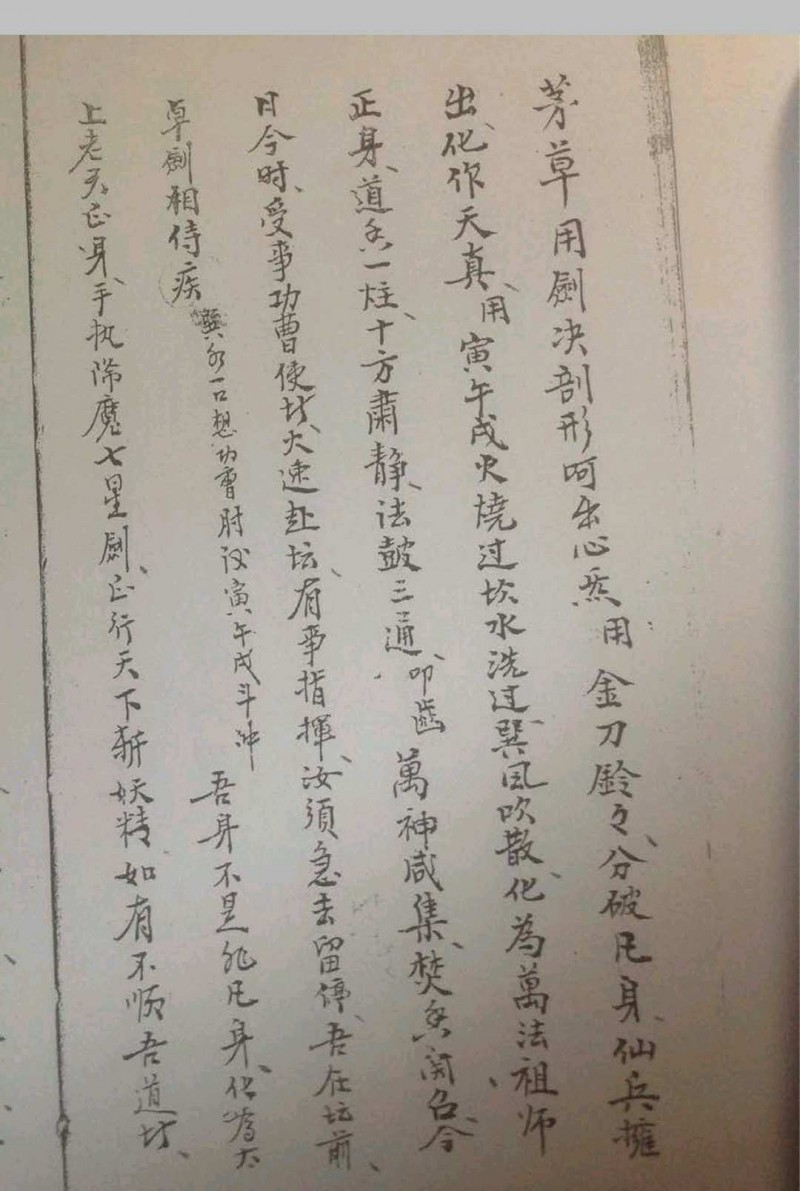 茅草用劍决剖形呵出心炁用金刀鈴々、分破凡身、仙兵擁
出、化作天真、用寅午戌火燒过坎水洗过、巽风吹散、化為萬法祖师
正身、道香一炷、十方肅静、法鼓三通、叩齒萬神咸集、焚香闻召、今
日今时、受事功曹使坊、火速赴坛、有事指揮、汝須急去留停、吾在坛前、
卓劍相侍疾巽水一口想功曹肘后寅午戌斗冲吾身不是非凡身、化為太
上老君正身、手执降魔七星劍、正行天下斬妖精、如有不順吾道坊、